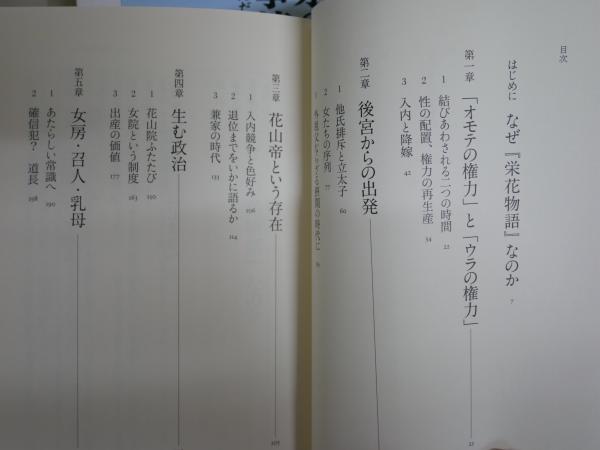 目次
はじめに なぜ『栄花物語』なのか 7
第一章 「オモテの権力」と「ウラの権力」 21
1 結びあわされる二つの時間 22
2 性の配置、権力の再生産 34
3 入内と降嫁 42
第二章 後宮からの出発
1 他氏排斥と立太子 60
2 女たちの序列 77
第三章 花山帝という存在 105
1 入内競争と色好み 106
2 退位までをいかに語るか 124
3 兼家の時代 133
第四章 生む政治
1 花山院ふたたび 150
2 女院という制度 163
3 出産の価値 177
第五章 女房・召人・乳母
1 あたらしい常識へ 190
2 確信犯? 道長 198